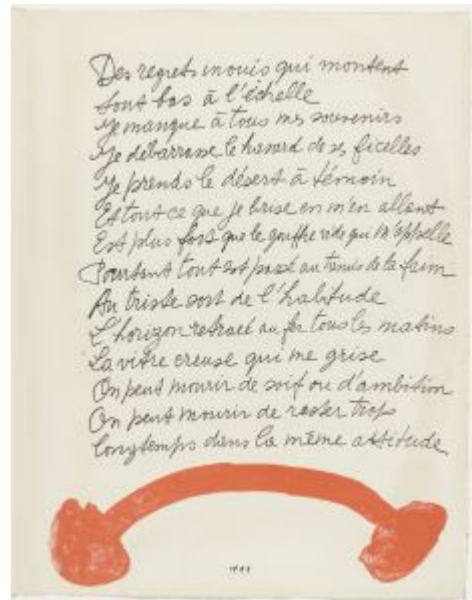 Des regrets inouis qui montent
tout bas à l'échelle
Je manque à tous mes souvenirs
Je débarrasse le hasard de ses ficelles
Je prends le désert à témoin
Et tout ce que je brise en m'en allant
Est plus fort que le gouffre vide qui m'appelle
Pourtant tout est passé au tamis de la faim
Au triste sort de l'habitude
L'horizon retracé au fer tous les matins
La vitre creuse qui me grise
On peut mourir de soif ou d'ambition
On peut mourir de rester trop
longtemps dans la même attitude